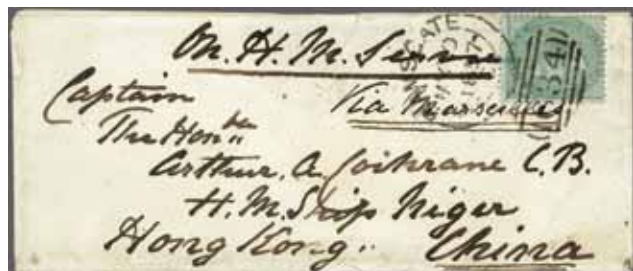 On. H. M. Service
Via Marseilles
Captain
The Honble
Arthur. A. Cochrane C.B.
H. M. Ship Niger
Hong Kong. China
634